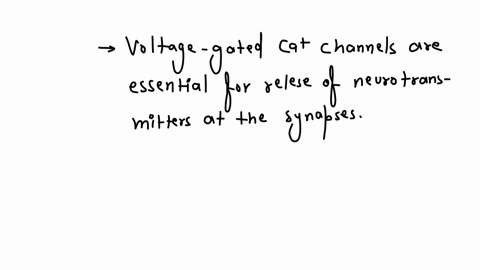 → Voltage-gated Ca+ channels are
essential for relese of neurotrans-
mitters at the synapses.